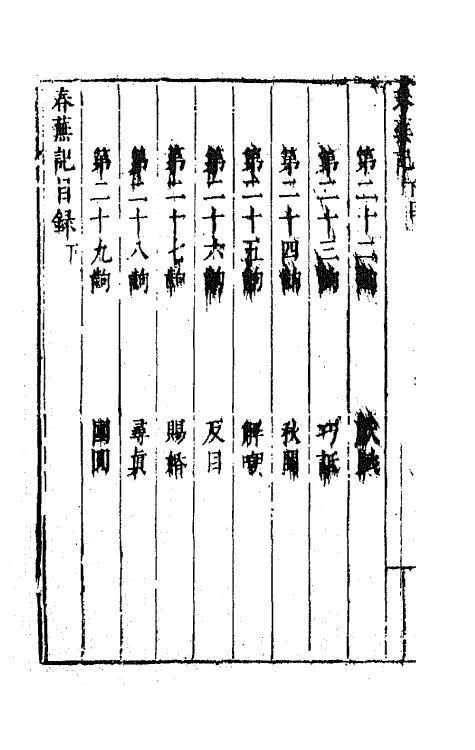 春蕪記下目
第二十二齣　獻賦
第二十三齣　巧詆
第二十四齣　秋閨
第二十五齣　解嘲
第二十六齣　反目
第二十七齣　賜婚
第二十八齣　尋眞
第二十九齣　團圓
春蕪記目録下